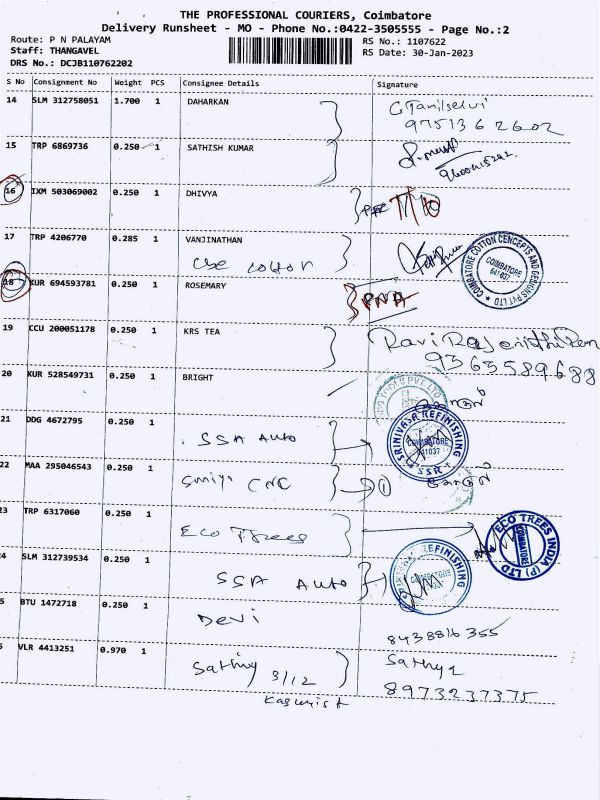 THE PROFESSIONAL COURIERS, Coimbatore
Delivery Runsheet - MO - Phone No.:0422-3505555 - Page No.:2
Route: P N PALAYAM
RS No.: 1107622
Staff: THANGAVEL
RS Date: 30-Jan-2023
DRS No.: DCJB110762202
S No Consignment No Weight PCS Consignee Details Signature
14 SLM 312758051 1.700 1 DAHARKAN
9751362602
15 TRP 6869736 0.250 1 SATHISH KUMAR
16 IXM 503069002 0.250 1 DHIVYA
17 TRP 4206770 0.285 1 VANJINATHAN
CSE COTTON
COIMBATORE COTTON CENCEPTS AND DESIGNS PVT LTD
COIMBATORE
641 037
18 KUR 694593781 0.250 1 ROSEMARY
PNA
19 CCU 200051178 0.250 1 KRS TEA
9363589688
20 KUR 528549731 0.250 1 BRIGHT
21 DDG 4672795 0.250 1
SSA Auto
SRINIVASA REFINISHING
COIMBATORE
641037
SSR
22 MAA 295046543 0.250 1
CNC 1
23 TRP 6317060 0.250 1
Eco Trees
ECO TREES INDIA (P) LTD
COIMBATORE
24 SLM 312739534 0.250 1
SSA Auto
REFINISHING
COIMBATORE
5 BTU 1472718 0.250 1
Devi
8438816355
6 VLR 4413251 0.970 1
Sathiy 3/12
Sathya
8973237375